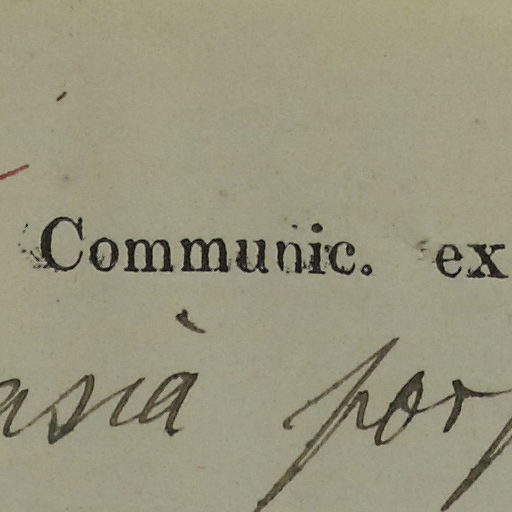 Communic. ex
asia porp